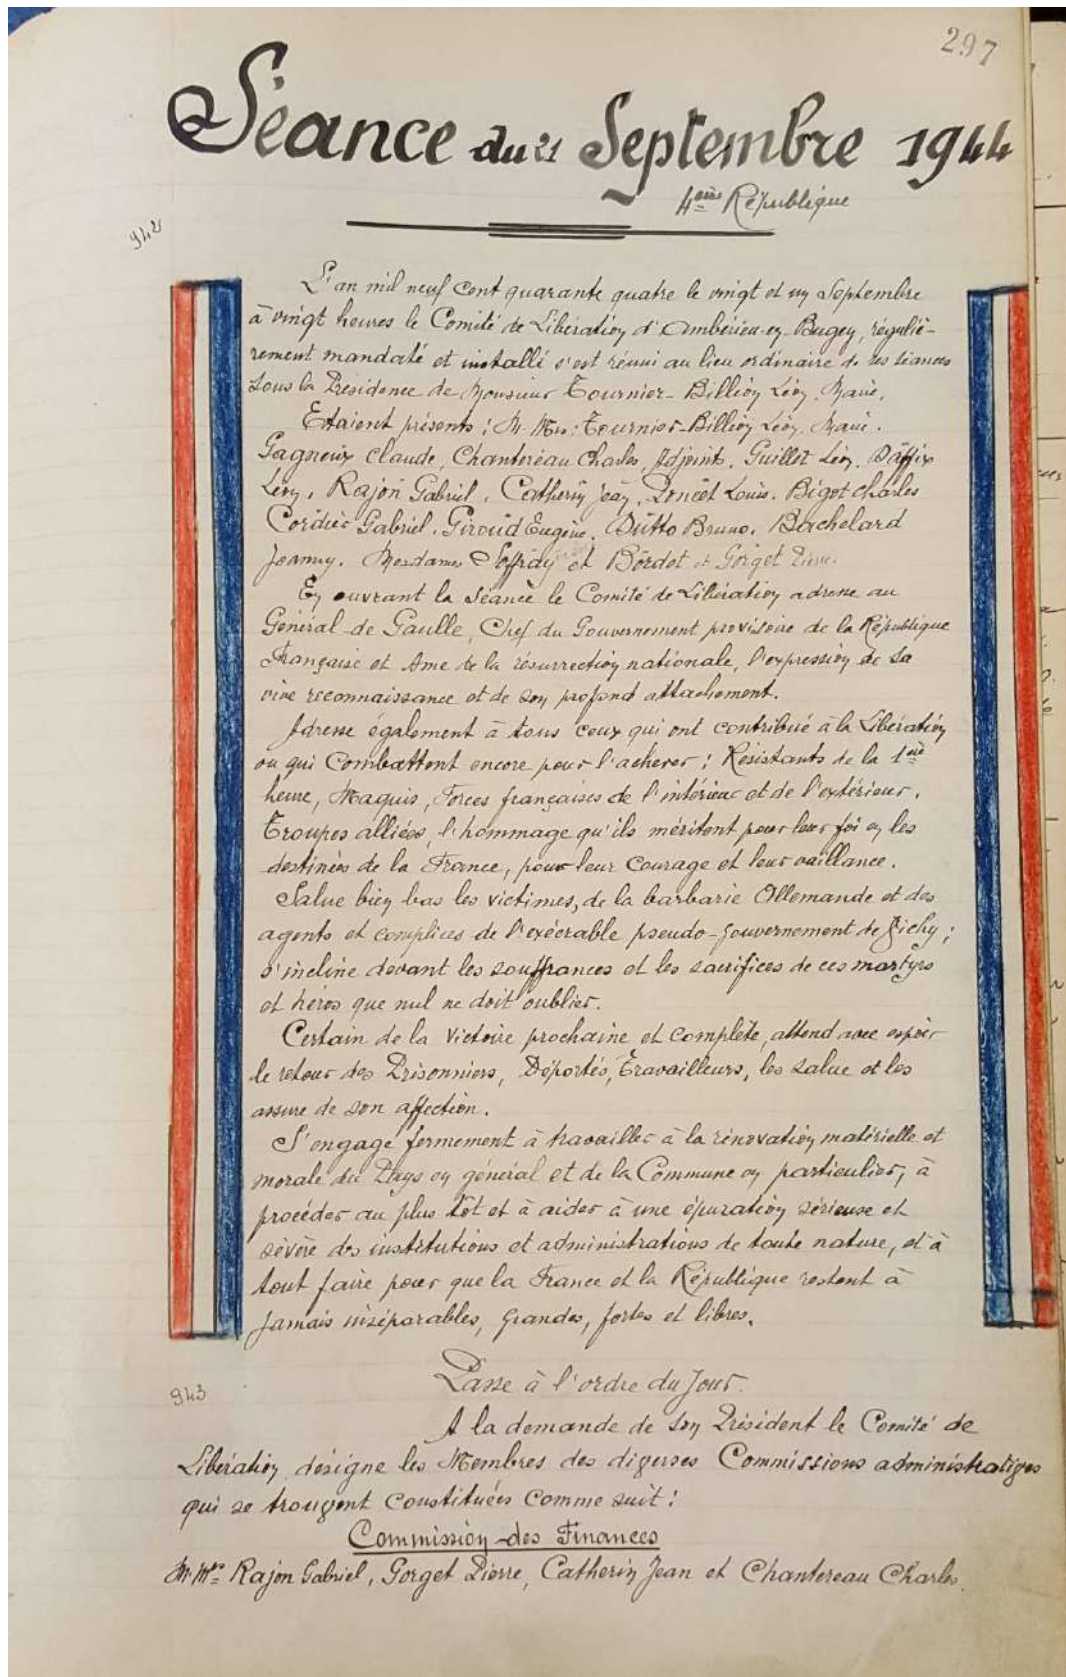 297
Séance du 21 Septembre 1944
4ème République
942
L'an mil neuf cent quarante quatre le vingt et un Septembre
à vingt heures le Comité de Libération d'Ambérieu-en-Bugey, réguliè-
rement mandaté et installé s'est réuni au lieu ordinaire de ses séances
sous la Présidence de Monsieur Tournier-Billion Léon, Maire.
Etaient présents : M. Mrs : Tournier-Billion Léon, Maire.
Gagneux Claude, Chantereau Charles, Adjoints. Guillet Léon. Daffix
Léon, Rajon Gabriel, Catherin Jean, Poncet Louis. Bigot Charles
Cordier Gabriel. Giroud Eugène. Dutto Bruno. Bachelard
Joanny. Mesdames Joffray et Bordet et Gorget Pierre.
En ouvrant la séance le Comité de Libération adresse au
Général de Gaulle, Chef du Gouvernement provisoire de la République
Française et Ame de la résurrection nationale, l'expression de sa
vive reconnaissance et de son profond attachement.
Adresse également à tous ceux qui ont contribué à la Libération
ou qui combattent encore pour l'achever : Résistants de la 1ère
heure, Maquis, Forces françaises de l'intérieur et de l'extérieur,
Troupes alliées, l'hommage qu'ils méritent pour leur foi en les
destinées de la France, pour leur courage et leur vaillance.
Salue bien bas les victimes, de la barbarie Allemande et des
agents et complices de l'exécrable pseudo-gouvernement de Vichy ;
s'incline devant les souffrances et les sacrifices de ces martyrs
et héros que nul ne doit oublier.
Certain de la victoire prochaine et complète, attend avec espoir
le retour des Prisonniers, Déportés, Travailleurs, les salue et les
assure de son affection.
S'engage fermement à travailler à la rénovation matérielle et
morale du Pays en général et de la Commune en particulier, à
procéder au plus tôt et à aider à une épuration sérieuse et
sévère des institutions et administrations de toute nature, et à
tout faire pour que la France et la République restent à
jamais inséparables, grandes, fortes et libres.
943
Passe à l'ordre du Jour.
A la demande de son Président le Comité de
Libération désigne les Membres des diverses Commissions administratives
qui se trouvent constituées comme suit :
Commission des Finances
M. Mrs Rajon Gabriel, Gorget Pierre, Catherin Jean et Chantereau Charles.